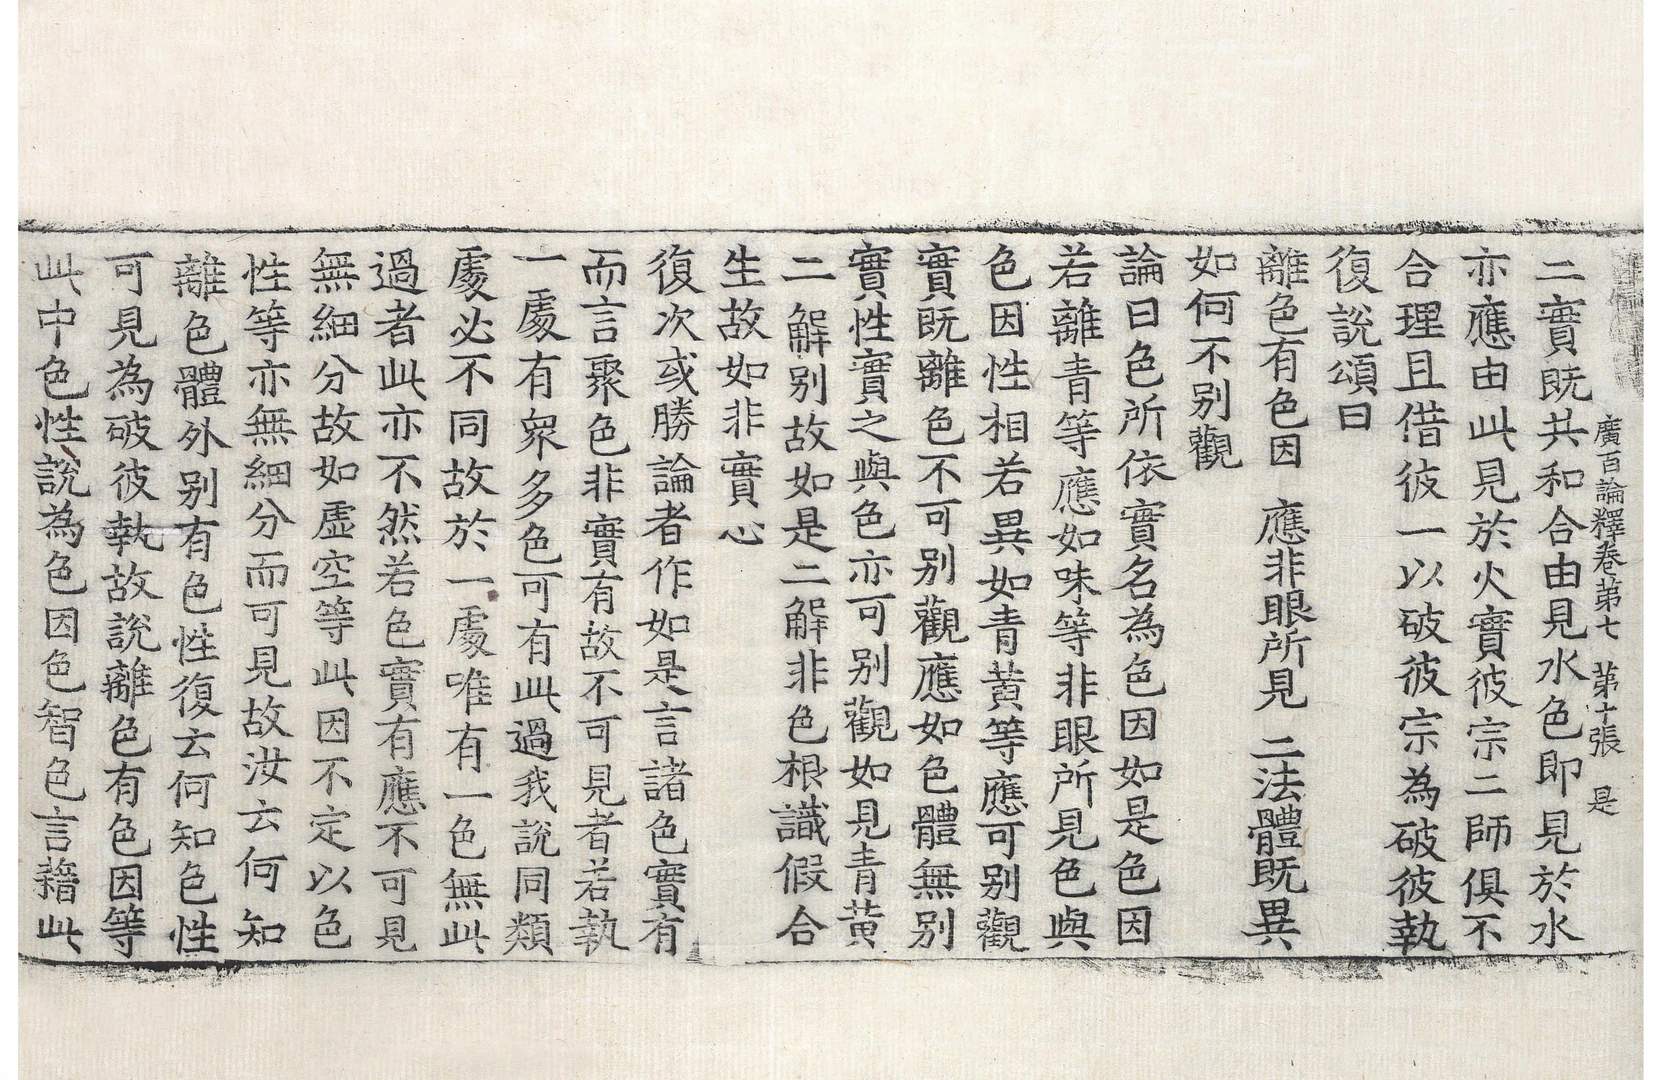 廣百論釋卷苐七 苐十張 是
二實既共和合由見水色即見於水
亦應由此見於火實彼宗二師俱不
合理且借彼一以破彼宗為破彼執
復說頌曰
離色有色因 應非眼所見 二法體既異
如何不別觀
論曰色所依實名為色因如是色因
若離青等應如味等非眼所見色與
色因性相若異如青黄等應可別觀
實既離色不可別觀應如色體無別
實性實之與色亦可別觀如見青黄
二解別故如是二解非色根識假合
生故如非實心
復次或勝論者作如是言諸色實有
而言聚色非實有故不可見者若執
一處有眾多色可有此過我說同類
處必不同故於一處唯有一色無此
過者此亦不然若色實有應不可見
無細分故如虛空等此因不定以色
性等亦無細分而可見故汝云何知
離色體外別有色性復云何知色性
可見為破彼執故說離色有色因等
此中色性說為色因色智色言藉此